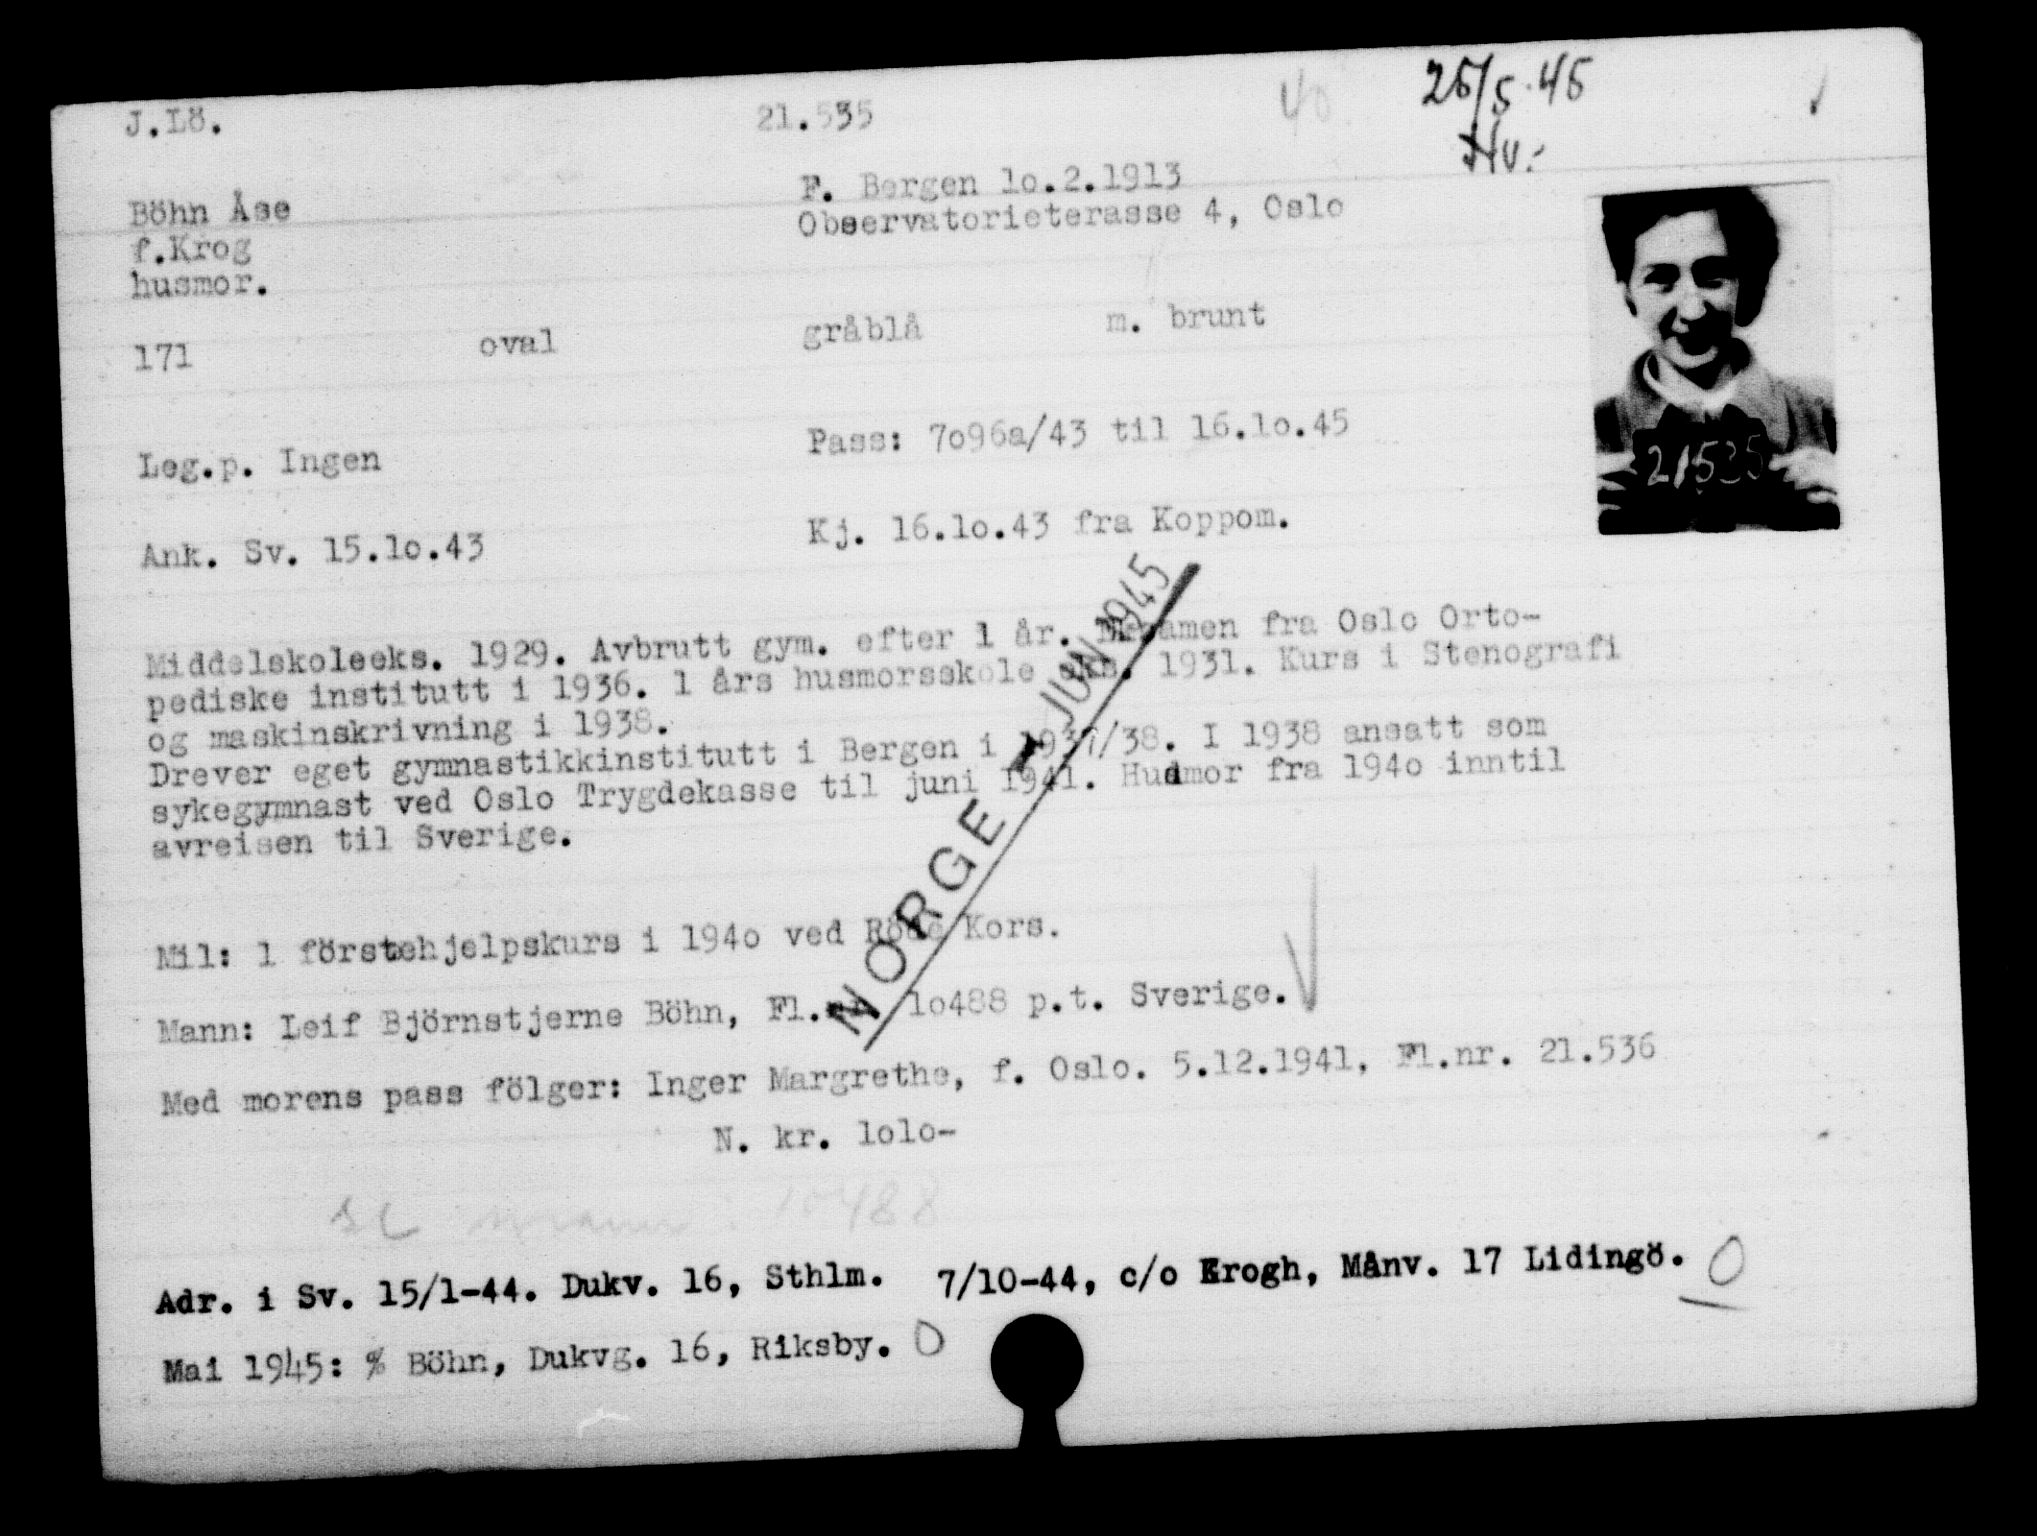 J.Lö. 21.535 40 25/5.45
Hv.
Böhn Åse F. Bergen lo.2.1913
f.Krog Observatorieterasse 4, Oslo
husmor.
171 oval gråblå m. brunt
Leg.p. Ingen Pass: 7o96a/43 til 16.lo.45
21535
Ank. Sv. 15.lo.43 Kj. 16.lo.43 fra Koppom.
Middelskoleeks. 1929. Avbrutt gym. efter 1 år. fra Oslo Orto-
pediske institutt i 1936. 1 års husmorsskole eks. 1931. Kurs i Stenografi
og maskinskrivning i 1938.
Drever eget gymnastikkinstitutt i Bergen i 1937/38. I 1938 ansatt som
sykegymnast ved Oslo Trygdekasse til juni 1941. Husmor fra 194o inntil
avreisen til Sverige.
NORGE JUN 1945
Mil: 1 förstehjelpskurs i 194o ved Röde Kors.
Mann: Leif Björnstjerne Böhn, Fl.nr. lo488 p.t. Sverige.
Med morens pass fölger: Inger Margrethe, f. Oslo. 5.12.1941, Fl.nr. 21.536
N. kr. lolo-
se mann 10488
Adr. i Sv. 15/1-44. Dukv. 16, Sthlm. 7/10-44, c/o Krogh, Månv. 17 Lidingö. O
Mai 1945: % Böhn, Dukvg. 16, Riksby. O